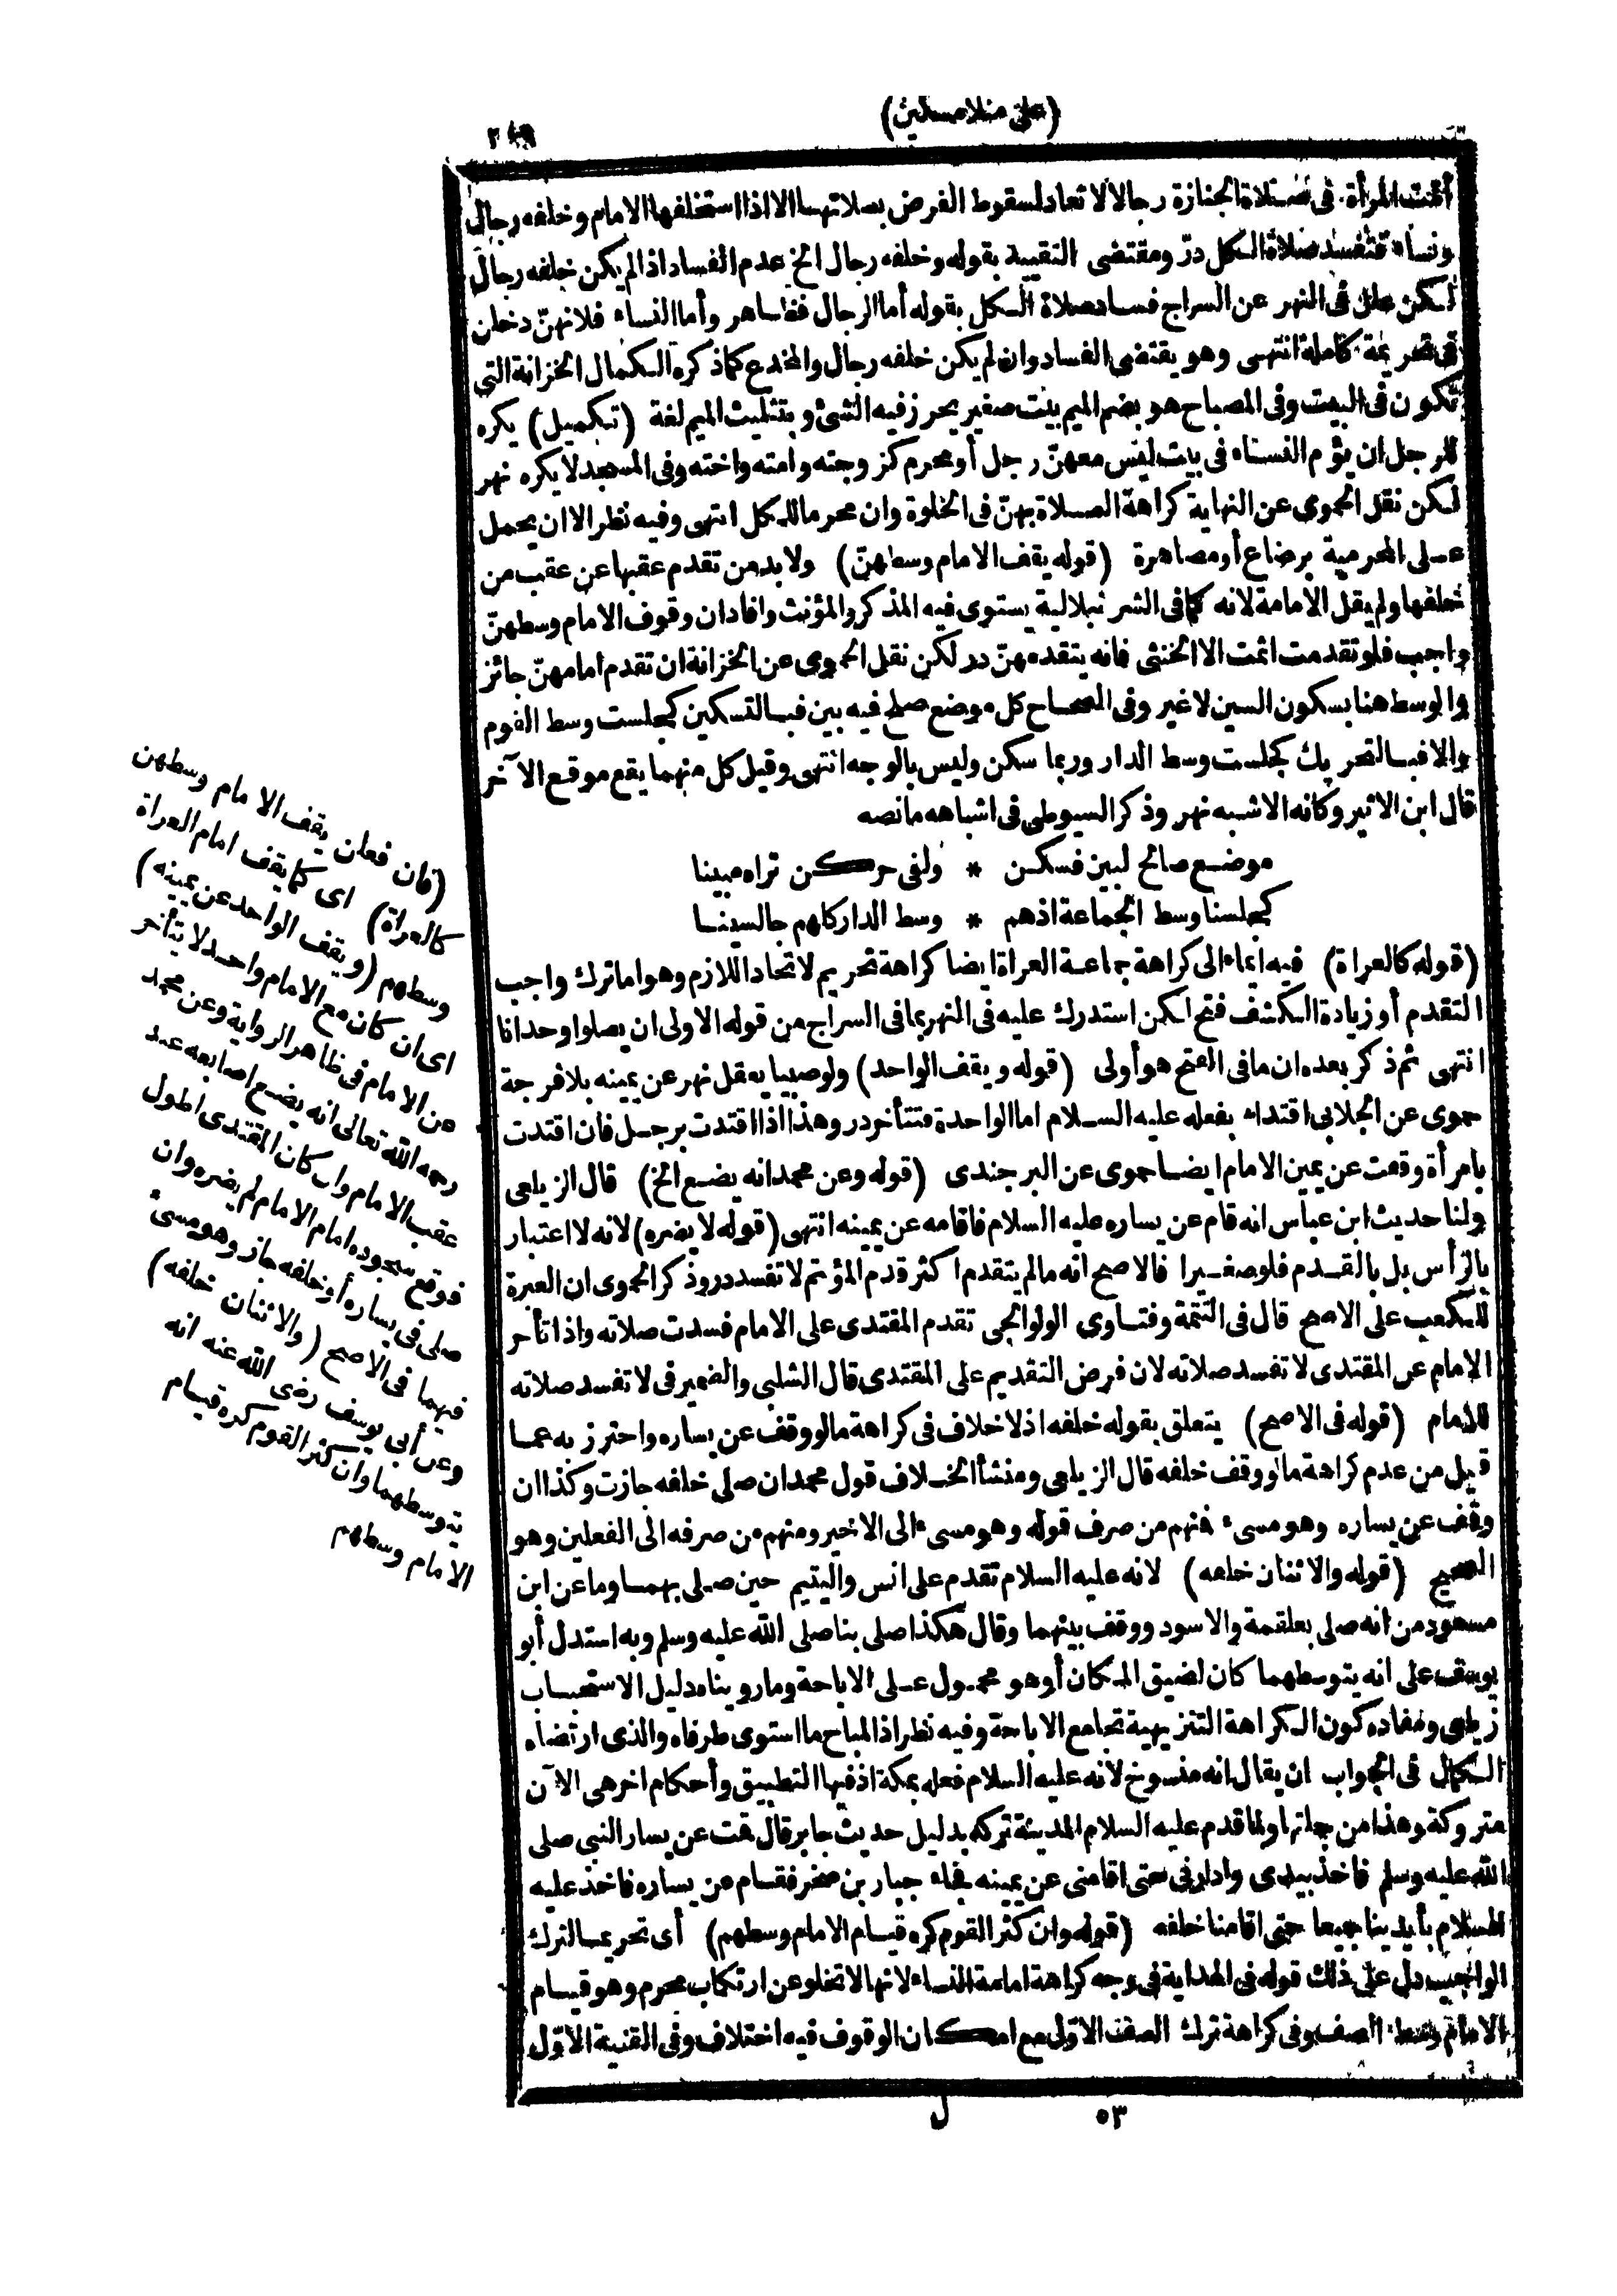 (على منلا مسكين)
أمت المرأة فى صلاة الجنازة رجالا لا تعاد لسقوط الفرض بصلاتها الا اذا استخلفها الامام وخلفه رجال
ونساء فتفسد صلاة الكل در ومقتضى التقييد بقوله وخلفه رجال الخ عدم الفساد اذا لم يكن خلفه رجال
لكن علل فى النهر عن السراج فساد صلاة الكل بقوله أما الرجال فظاهر وأما النساء فلانهنّ دخلن
فى تحريمة كاملة انتهى وهو يقتضى الفساد وان لم يكن خلفه رجال والمخدع كما ذكره الكمال الخزانة التى
تكون فى البيت وفى المصباح هو بضم الميم بيت صغير يحرز فيه الشئ وبتثليث الميم لغة (تكميل) يكره
للرجل ان يؤم النساء فى بيت ليس معهنّ رجل أو محرم كزوجته وامته واخته وفى المسجد لا يكره نهر
لكن نقل الحموى عن النهاية كراهة الصلاة بهنّ فى الخلوة وان محرما للكل انتهى وفيه نظر الا ان يحمل
على المحرمية برضاع أو مصاهرة (قوله يقف الامام وسطهنّ) ولا بد من تقدم عقبها عن عقب من
خلفها ولم يقل الامامة لانه كما فى الشرنبلالية يستوى فيه المذكر والمؤنث وافاد ان وقوف الامام وسطهنّ
واجب فلو تقدمت اثمت الا الخنثى فانه يتقدمهنّ در لكن نقل الحموى عن الخزانة ان تقدم امامهنّ جائز
والوسط هنا بسكون السين لا غير وفى الصحاح كل موضع صلح فيه بين فبالتسكين كجلست وسط القوم
والا فبالتحريك كجلست وسط الدار وربما سكن وليس بالوجه انتهى وقيل كل منهما يقع موقع الآخر
قال ابن الاثير وكانه الاشبه نهر وذكر السيوطى فى اشباهه ما نصه
موضع صالح لبين فسكن * ولفى حركن تراه مبينا
كجلسنا وسط الجماعة اذهم * وسط الدار كلهم جالسينا
(قوله كالعراة) فيه ايماء الى كراهة جماعة العراة ايضا كراهة تحريم لاتحاد اللازم وهو اما ترك واجب
التقدم أو زيادة الكشف فتح لكن استدرك عليه فى النهر بما فى السراج من قوله الاولى ان يصلوا وحدانا
انتهى ثم ذكر بعده ان ما فى الفتح هو أولى (قوله ويقف الواحد) ولو صبيا يعقل نهر عن يمينه بلا فرجة
حموى عن الجلابى اقتداء بفعله عليه السلام اما الواحدة فتتأخر در وهذا اذا اقتدت برجل فان اقتدت
بامرأة وقعت عن يمين الامام ايضا حموى عن البرجندى (قوله وعن محمد انه يضع الخ) قال الزيلعى
ولنا حديث ابن عباس انه قام عن يساره عليه السلام فاقامه عن يمينه انتهى (قوله لا يضره) لانه لا اعتبار
بالرأس بل بالقدم فلو صغيرا فالاصح انه ما لم يتقدم اكثر قدم المؤتم لا تفسد در وذكر الحموى ان العبرة
للكعب على الاصح قال فى التتمة وفتاوى الولوالجى تقدم المقتدى على الامام فسدت صلاته واذا تأخر
الامام عن المقتدى لا تفسد صلاته لان فرض التقديم على المقتدى قال الشلبى والضمير فى لا تفسد صلاته
للامام (قوله فى الاصح) يتعلق بقوله خلفه اذ لا خلاف فى كراهة ما لو وقف عن يساره واحترز به عما
قيل من عدم كراهة ما لو وقف خلفه قال الزيلعى ومنشأ الخلاف قول محمد ان صلى خلفه جازت وكذا ان
وقف عن يساره وهو مسىء فمنهم من صرف قوله وهو مسىء الى الاخير ومنهم من صرفه الى الفعلين وهو
الصحيح (قوله والاثنان خلفه) لانه عليه السلام تقدم على انس واليتيم حين صلى بهما وما عن ابن
مسعود من انه صلى بعلقمة والاسود ووقف بينهما وقال هكذا صلى بنا صلى الله عليه وسلم وبه استدل أبو
يوسف على انه يتوسطهما كان لضيق المكان أو هو محمول على الاباحة وما رويناه دليل الاستحباب
زيلعى ومفاده كون الكراهة التنزيهية تجامع الاباحة وفيه نظر اذ المباح ما استوى طرفاه والذى ارتضاه
الكمال فى الجواب ان يقال انه منسوخ لانه عليه السلام فعله بمكة اذ فيها التطبيق وأحكام اخر هى الآن
متروكة وهذا من جملتها ولما قدم عليه السلام المدينة تركه بدليل حديث جابر قال قمت عن يسار النبى صلى
الله عليه وسلم فاخذ بيدى وادارنى حتى اقامنى عن يمينه فجاء جبار بن صخر فقام عن يساره فاخذ عليه
السلام بأيدينا جميعا حتى اقامنا خلفه (قوله وان كثر القوم كره قيام الامام وسطهم) أى تحريما لترك
الواجب دل على ذلك قوله فى الهداية فى وجه كراهة امامة النساء لانها لا تخلو عن ارتكاب محرم وهو قيام
الامام وسط الصف وفى كراهة ترك الصف الاوّل مع امكان الوقوف فيه اختلاف وفى القنية الاوّل
(فان فعلن يقف الامام وسطهن
كالعراة) اى كما يقف امام العراة
وسطهم (ويقف الواحد عن يمينه)
اى ان كان مع الامام واحد لا يتأخر
عن الامام فى ظاهر الرواية وعن محمد
رحمه الله تعالى انه يضع اصابعه عند
عقب الامام وان كان المقتدى اطول
فوقع سجوده امام الامام لم يضره وان
صلى فى يساره أو خلفه جاز وهو مسئ
فيهما فى الاصح (والاثنان خلفه)
وعن أبى يوسف رضى الله عنه انه
يتوسطهما وان كثر القوم كره قيام
الامام وسطهم
٥٣ ل